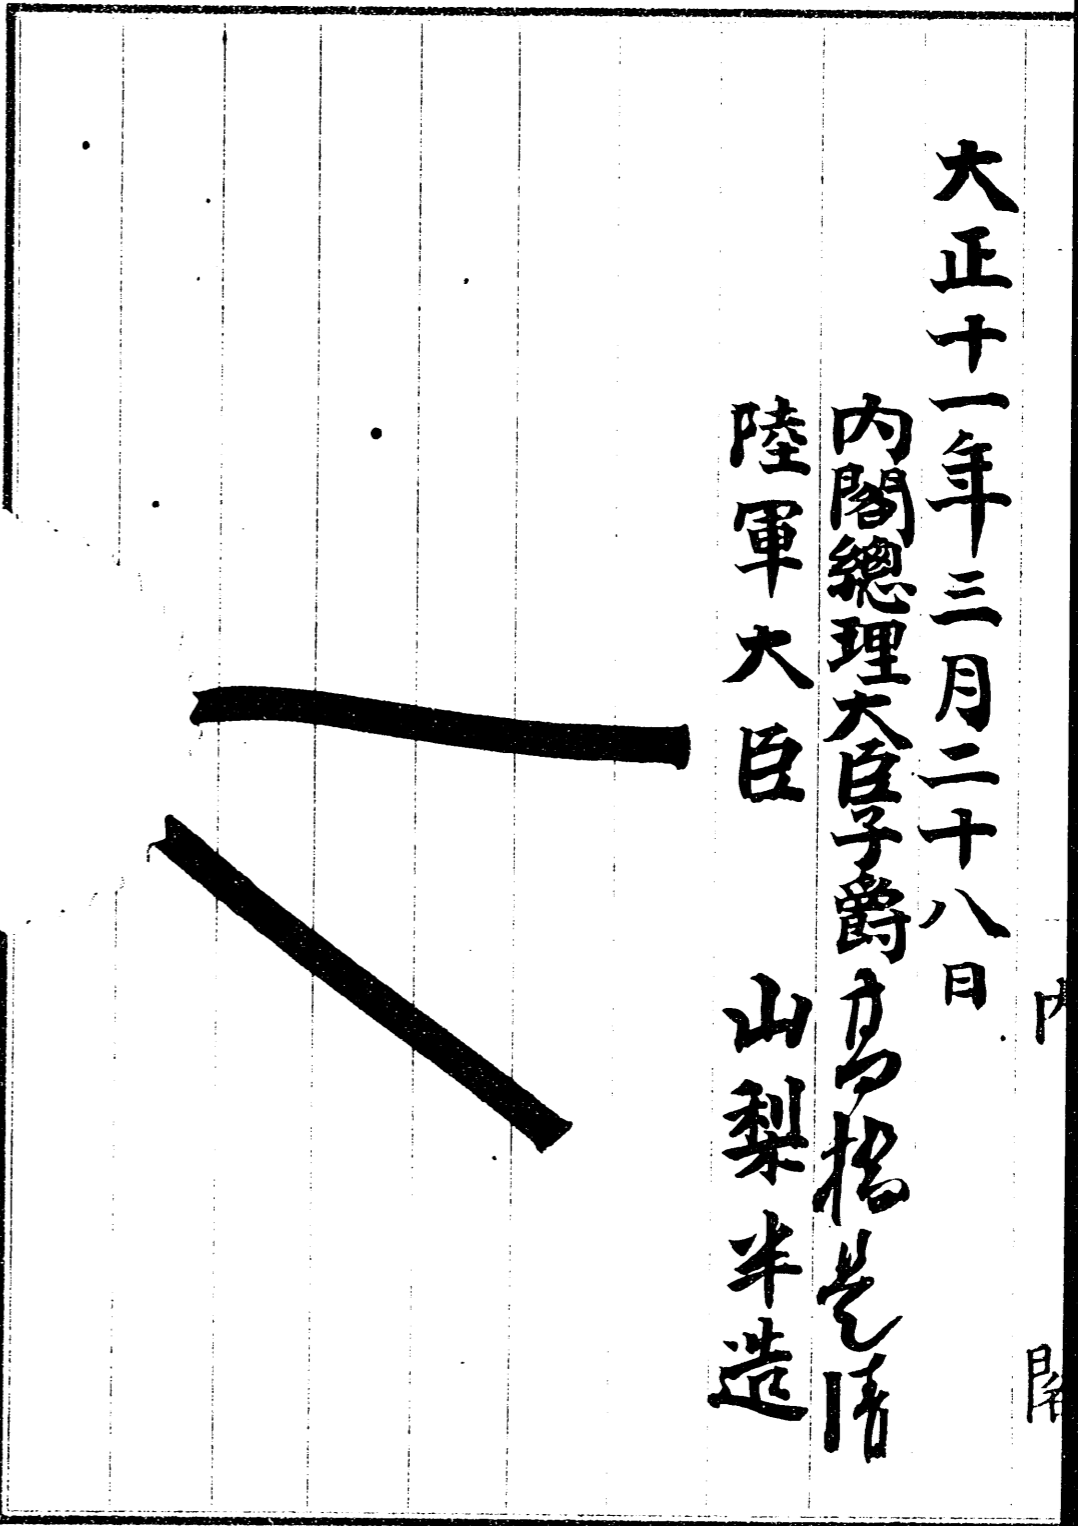 大正十一年三月二十八日
内閣總理大臣子爵高橋是清
陸軍大臣 山梨半造
内閣